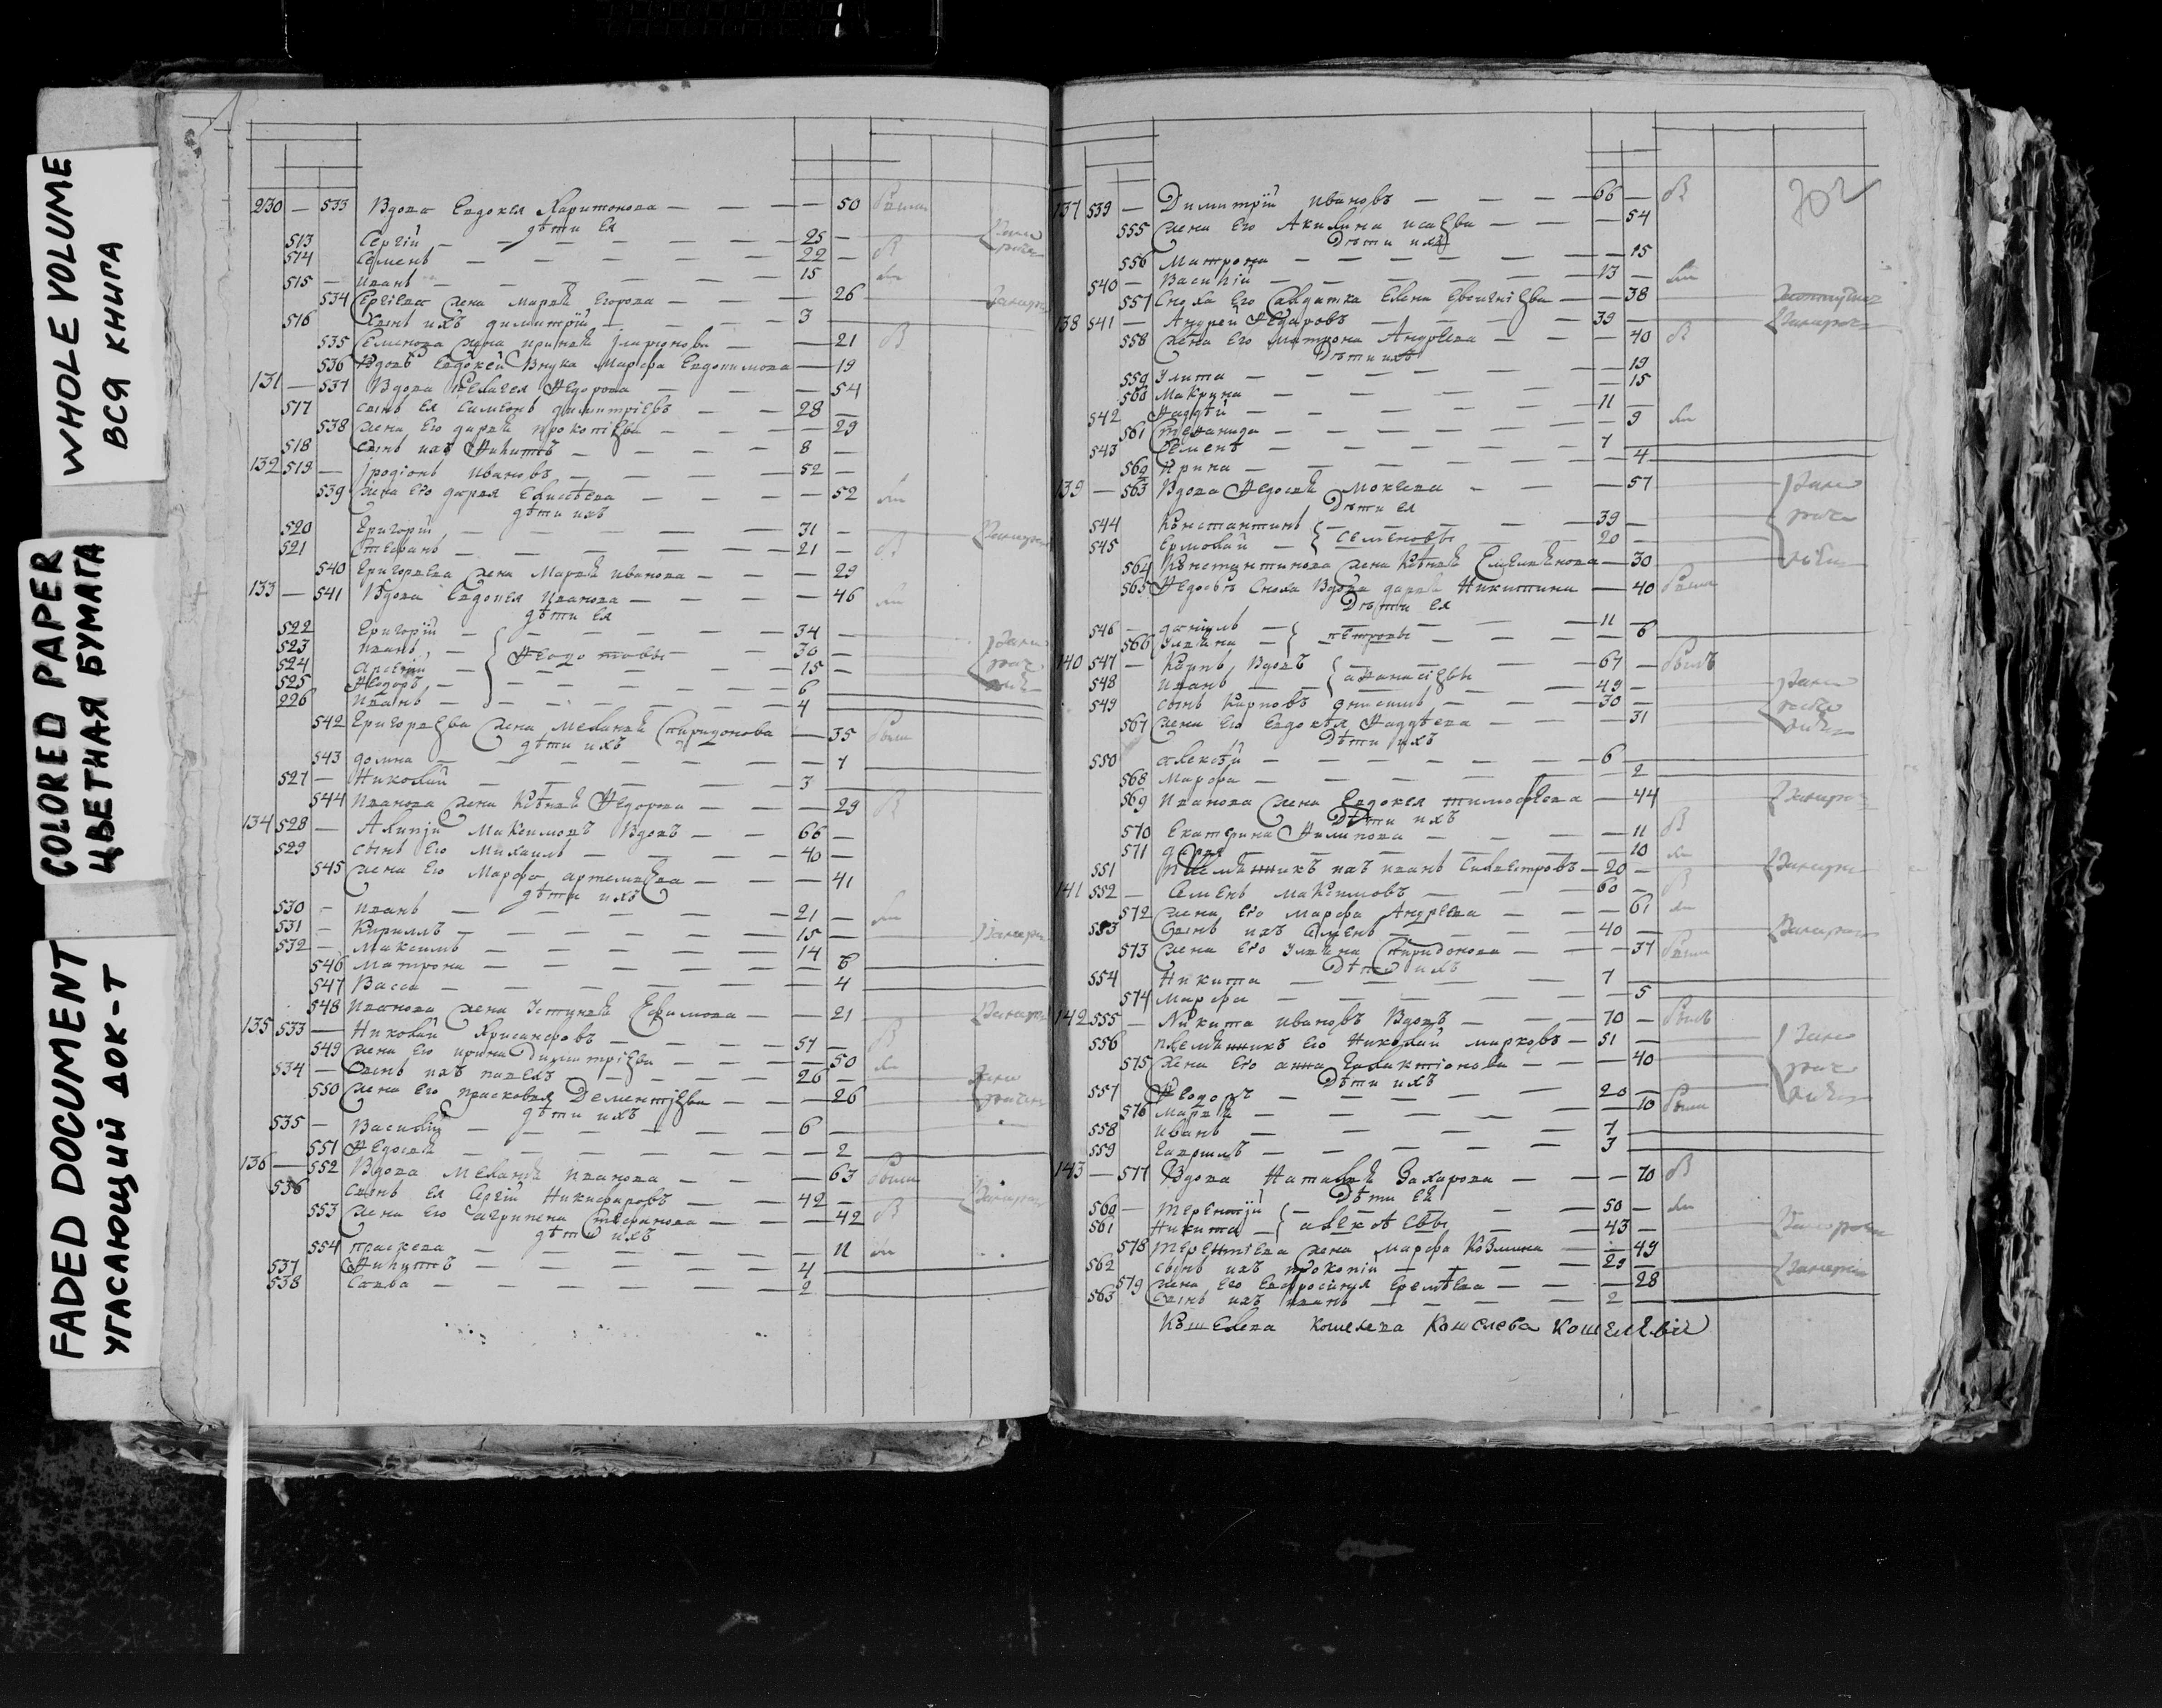 WHOLE VOLUME
ВСЯ КНИГА
COLORED PAPER
ЦВЕТНАЯ БУМАГА
FADED DOCUMENT
УГАСАЮЩИЙ ДОК-Т
230 — 533 Вдова Евдокея Харитонова — 50
дѣти ея
513 Сергiй — 25 —
514 Семенъ — 22 —
515 — Иванъ — 15 —
534 Сергiева жена Марья Егорова — 26
516 Сынъ ихъ димитрiй — 3
535 Семенова жена — 21
536 Вдовы Евдокеи Внука Марфа Евдокимова — 19
131 — 537 Вдова Пелагея Федорова — 54
517 сынъ ея Симеонъ димитрiевъ — 28 —
538 жена его дарья прокопiева — 29
518 сынъ ихъ Никита — 8 —
132 519 — Iродiонъ Ивановъ — 52 —
539 жена его дарья Елисѣева — 52
дѣти ихъ
520 Григорiй — 31 —
521 Стефанъ — 21 —
540 Григорьева жена Марья Иванова — 29
133 — 541 Вдова Евдокея Иванова — 46
дѣти ея
522 Григорiй — 34 —
523 Иванъ — 30 —
524 Арсенiй — 15 —
525 Федоръ — 6
226 Иванъ — 4
542 Григорьева жена Меланья Спиридонова — 35
дѣти ихъ
543 домна — 7
527 — Николай — 3
544 Иванова жена Ксенья Федорова — 29
134 528 — Алипiй Максимовъ Вдовъ — 66 —
529 сынъ его Михаилъ — 40 —
545 жена его Марфа артемьева — 41
дѣти ихъ
530 — Иванъ — 21 —
531 — Кириллъ — 15 —
532 — Максимъ — 14
546 Матрона — 6
547 Васса — 4
548 Иванова жена Устинья Ефимова — 21
135 533 — Николай Хрисанфовъ — 51 —
549 жена его ирина Димитрiева — 50
534 — Сынъ ихъ павелъ — 26 —
550 жена его прасковья Дементiева — 26
дѣти ихъ
535 — Василiй — 6
551 Федосья — 2
136 — 552 Вдова Меланья Иванова — 63
536 Сынъ ея Сергiй Никифоровъ — 42 —
553 жена его агрипена Стефанова — 42
дѣти ихъ
554 праскева — 11
537 Никита — 4
538 Савва — 2
302
137 539 — Димитрiй Ивановъ — 66 —
555 жена его Акилина исаева — 54
Дѣти ихъ
556 Матрона — 15
540 — Василiй — 13 —
557 Сноха его Солдатка Елена — 38
138 541 — Андрей Федоровъ — 39 —
558 жена его Матрона Андреева — 40
Дѣти ихъ
559 Улита — 19
560 Макрина — 15
542 Фаддѣй — 11 —
561 Степанида — 9
543 Семенъ — 7
562 Ирина — 4
139 — 563 Вдова Федосья Мокеева — 57
Дѣти ея
544 Константинъ — Семеновы — 39 —
545 Ермолай — 20 —
564 Константинова жена Ксенья Емельянова — 30
565 Федосьи Сноха Вдова дарья Никитина — 40
Дѣти ея
546 — данiилъ — петровы — 11 —
566 Ульяна — 6
140 547 — Карпъ Вдовъ — афанасiевы — 67 —
548 Иванъ — 49 —
549 сынъ Карповъ Онисимъ — 30 —
567 жена его Евдокея Фаддѣева — 31
Дѣти ихъ
550 алексѣй — 6
568 Марфа — 2
569 Иванова жена Евдокея тимофѣева — 44
Дѣти ихъ
570 Екатерина Филипова — 11
571 дарья — 10
551 Племянникъ ихъ иванъ Силвестровъ — 20 —
141 552 — Семенъ Максимовъ — 60 —
572 жена его Марфа Андреева — 61
553 Сынъ ихъ Семенъ — 40 —
573 жена его Ульяна Спиридонова — 37
Дѣти ихъ
554 Никита — 7
574 Марфа — 5
142 555 — Никита Ивановъ Вдовъ — 70 —
556 племянникъ его Николай Марковъ — 51 —
575 жена его анна Галактiонова — 40
Дѣти ихъ
557 Федоръ — 20 —
576 Марья — 10
558 Иванъ — 7
559 Гаврилъ — 3
143 — 577 Вдова Наталья Захарова — 70
Дѣти ея
560 — Терентiй — алексѣевы — 50 —
561 Никита — 43 —
578 терентiева жена Марфа Козмина — 49
562 сынъ ихъ прокопiй — 29 —
579 жена его Евфросинья Еремѣева — 28
563 Сынъ ихъ иванъ — 2
Кошелева Кошелева Кошелева